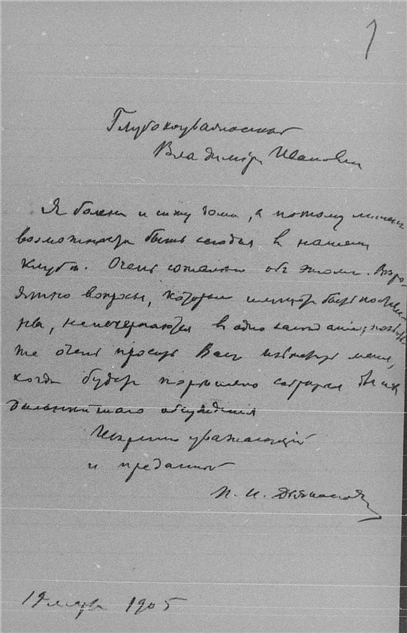 1
Глубокоуважаемый
Владимір Иванович
Я болен и сижу дома, а потому лишен
возможности быть сегодня в нашем
клубѣ. Очень сожалѣю об этом. Вѣро-
ятно вопросы, которые
не исчерпаются в одно засѣданіе;
же очень просить Вас извѣстить меня,
когда будет порѣшено собраться для их
дальнѣйшаго обсужденія
Искренно уважающій
и преданный
П. И.
19 марта 1905